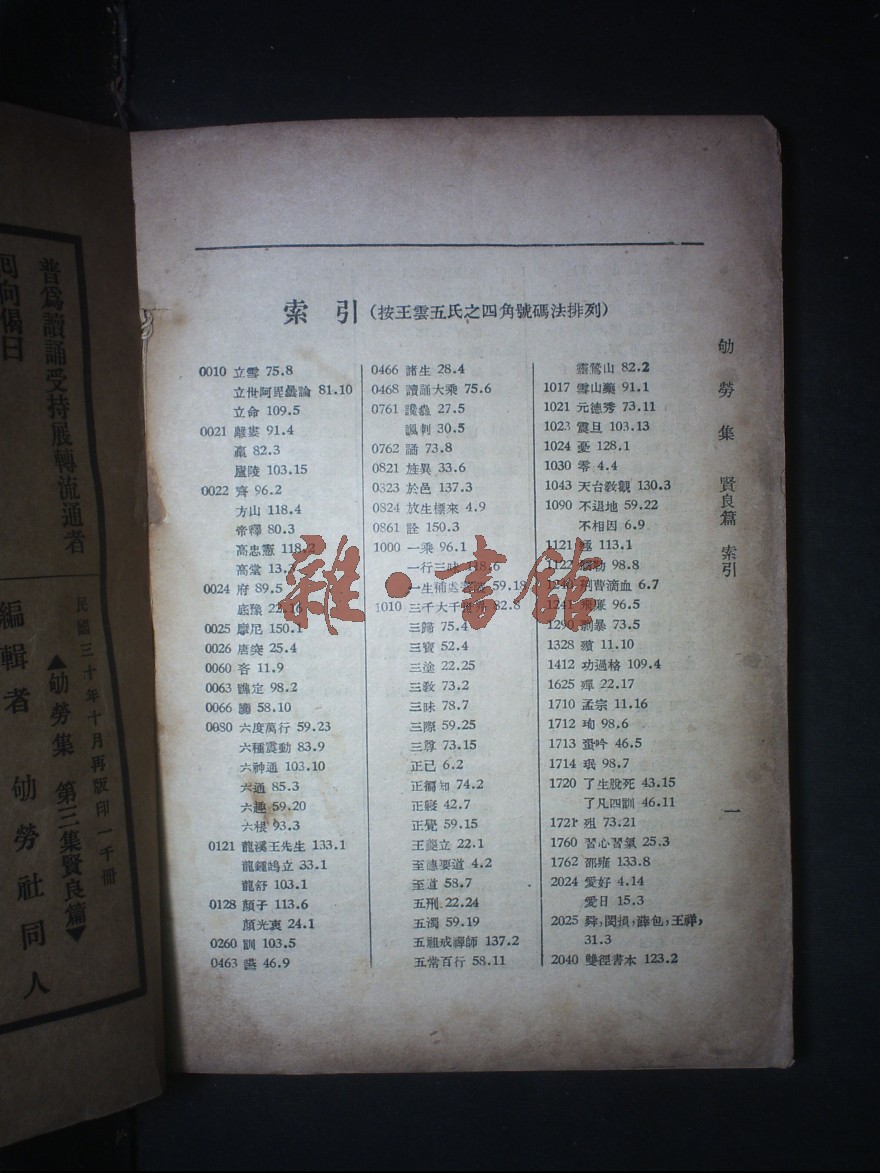 索 引(按王雲五氏之四角號碼法排列)
0010 立雪 75.8
立世阿毘曇論 81.10
立命 109.5
0021 離婁 91.4
羸 82.3
廬陵 103.15
0022 齊 96.2
方山 118.4
帝釋 80.3
高忠憲 118.2
高堂 13.3
0024 府 89.5
底豫 22.16
0025 摩尼 150.1
0026 唐突 25.4
0060 吝 11.9
0063 譙定 98.2
0066 58.10
0080 六度萬行 59.23
六種震動 83.9
六神通 103.10
六通 85.3
六趣 59.20
六根 93.3
0121 龍溪王先生 133.1
龍鍾鵠立 33.1
龍舒 103.1
0128 顏子 113.6
顏光衷 24.1
0260 訓 103.5
0463 46.9
0466 諸生 28.4
0468 讀誦大乘 75.6
0761 讒 27.5
諷判 30.5
0762 誦 73.8
0821 旌異 33.6
0323 於邑 137.3
0824 放生標來 4.9
0861 詮 150.3
1000 一乘 96.1
一行三昧 118.6
一生補處 59.18
1010 三千大千世界 82.8
三歸 75.4
三寶 52.4
三塗 22.25
三教 73.2
三昧 78.7
三際 59.25
三尊 73.15
正已 6.2
正徧知 74.2
正寢 42.7
正覺 59.15
王 立 22.1
至德要道 4.2
至道 58.7
五刑 22.24
五濁 59.19
五祖戒禪師 137.2
五常百行 58.11
靈鷲山 82.2
1017 雪山藥 91.1
1021 元德秀 73.11
1023 震旦 103.13
1024 憂 128.1
1030 零 4.4
1043 天台教觀 130.3
1090 不退地 59.22
不相因 6.9
1121 113.1
1122 98.8
1240 刲臂滴血 6.7
1241 飛廉 96.5
1290 剽暴 73.5
1328 殯 11.10
1412 功過格 109.4
1625 殫 22.17
1710 孟宗 11.16
1712 珣 98.6
1713 蛩吟 46.5
1714 珉 98.7
1720 了生脫死 43.15
了凡四訓 46.11
1721 殂 73.21
1760 習心習氣 25.3
1762 邵雍 133.8
2024 愛好 4.14
愛日 15.3
2025 舜,閔損,薛包,王祥,
31.3
2040 雙徑書本 123.2
劬勞集 賢良篇 索引
一
普爲讀誦受持展轉流通者
回向偈曰
民國三十年十月再版印一千冊
▲劬勞集 第三集賢良篇▼
編輯者 劬勞社同人
雜·書館